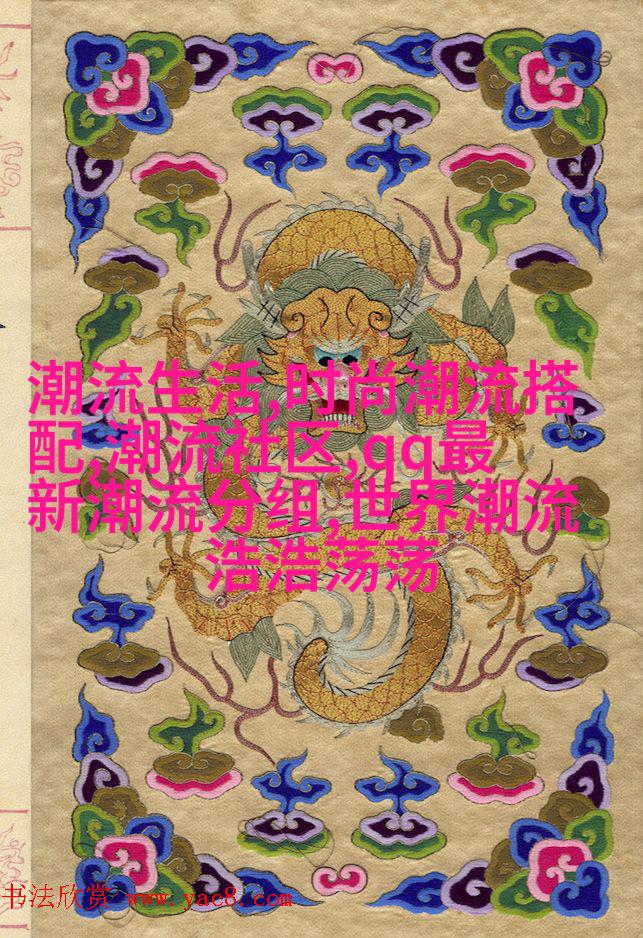 潮流生活,时尚潮流搭
配,潮流社区,qq最
新潮流分组,世界潮流
浩浩荡荡
书法欣赏 www.yac8.com